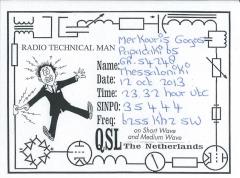 RADIO TECHNICAL MAN
Merkouris Gogos
GR-54248
Name:
Thessaloniki
Date: 12 oct 2013
Time: 23.32 hour utc
SINPO: 35444
Freq: 6255 KHz SW
QSL on Short Wave
and Medium Wave
The Netherlands